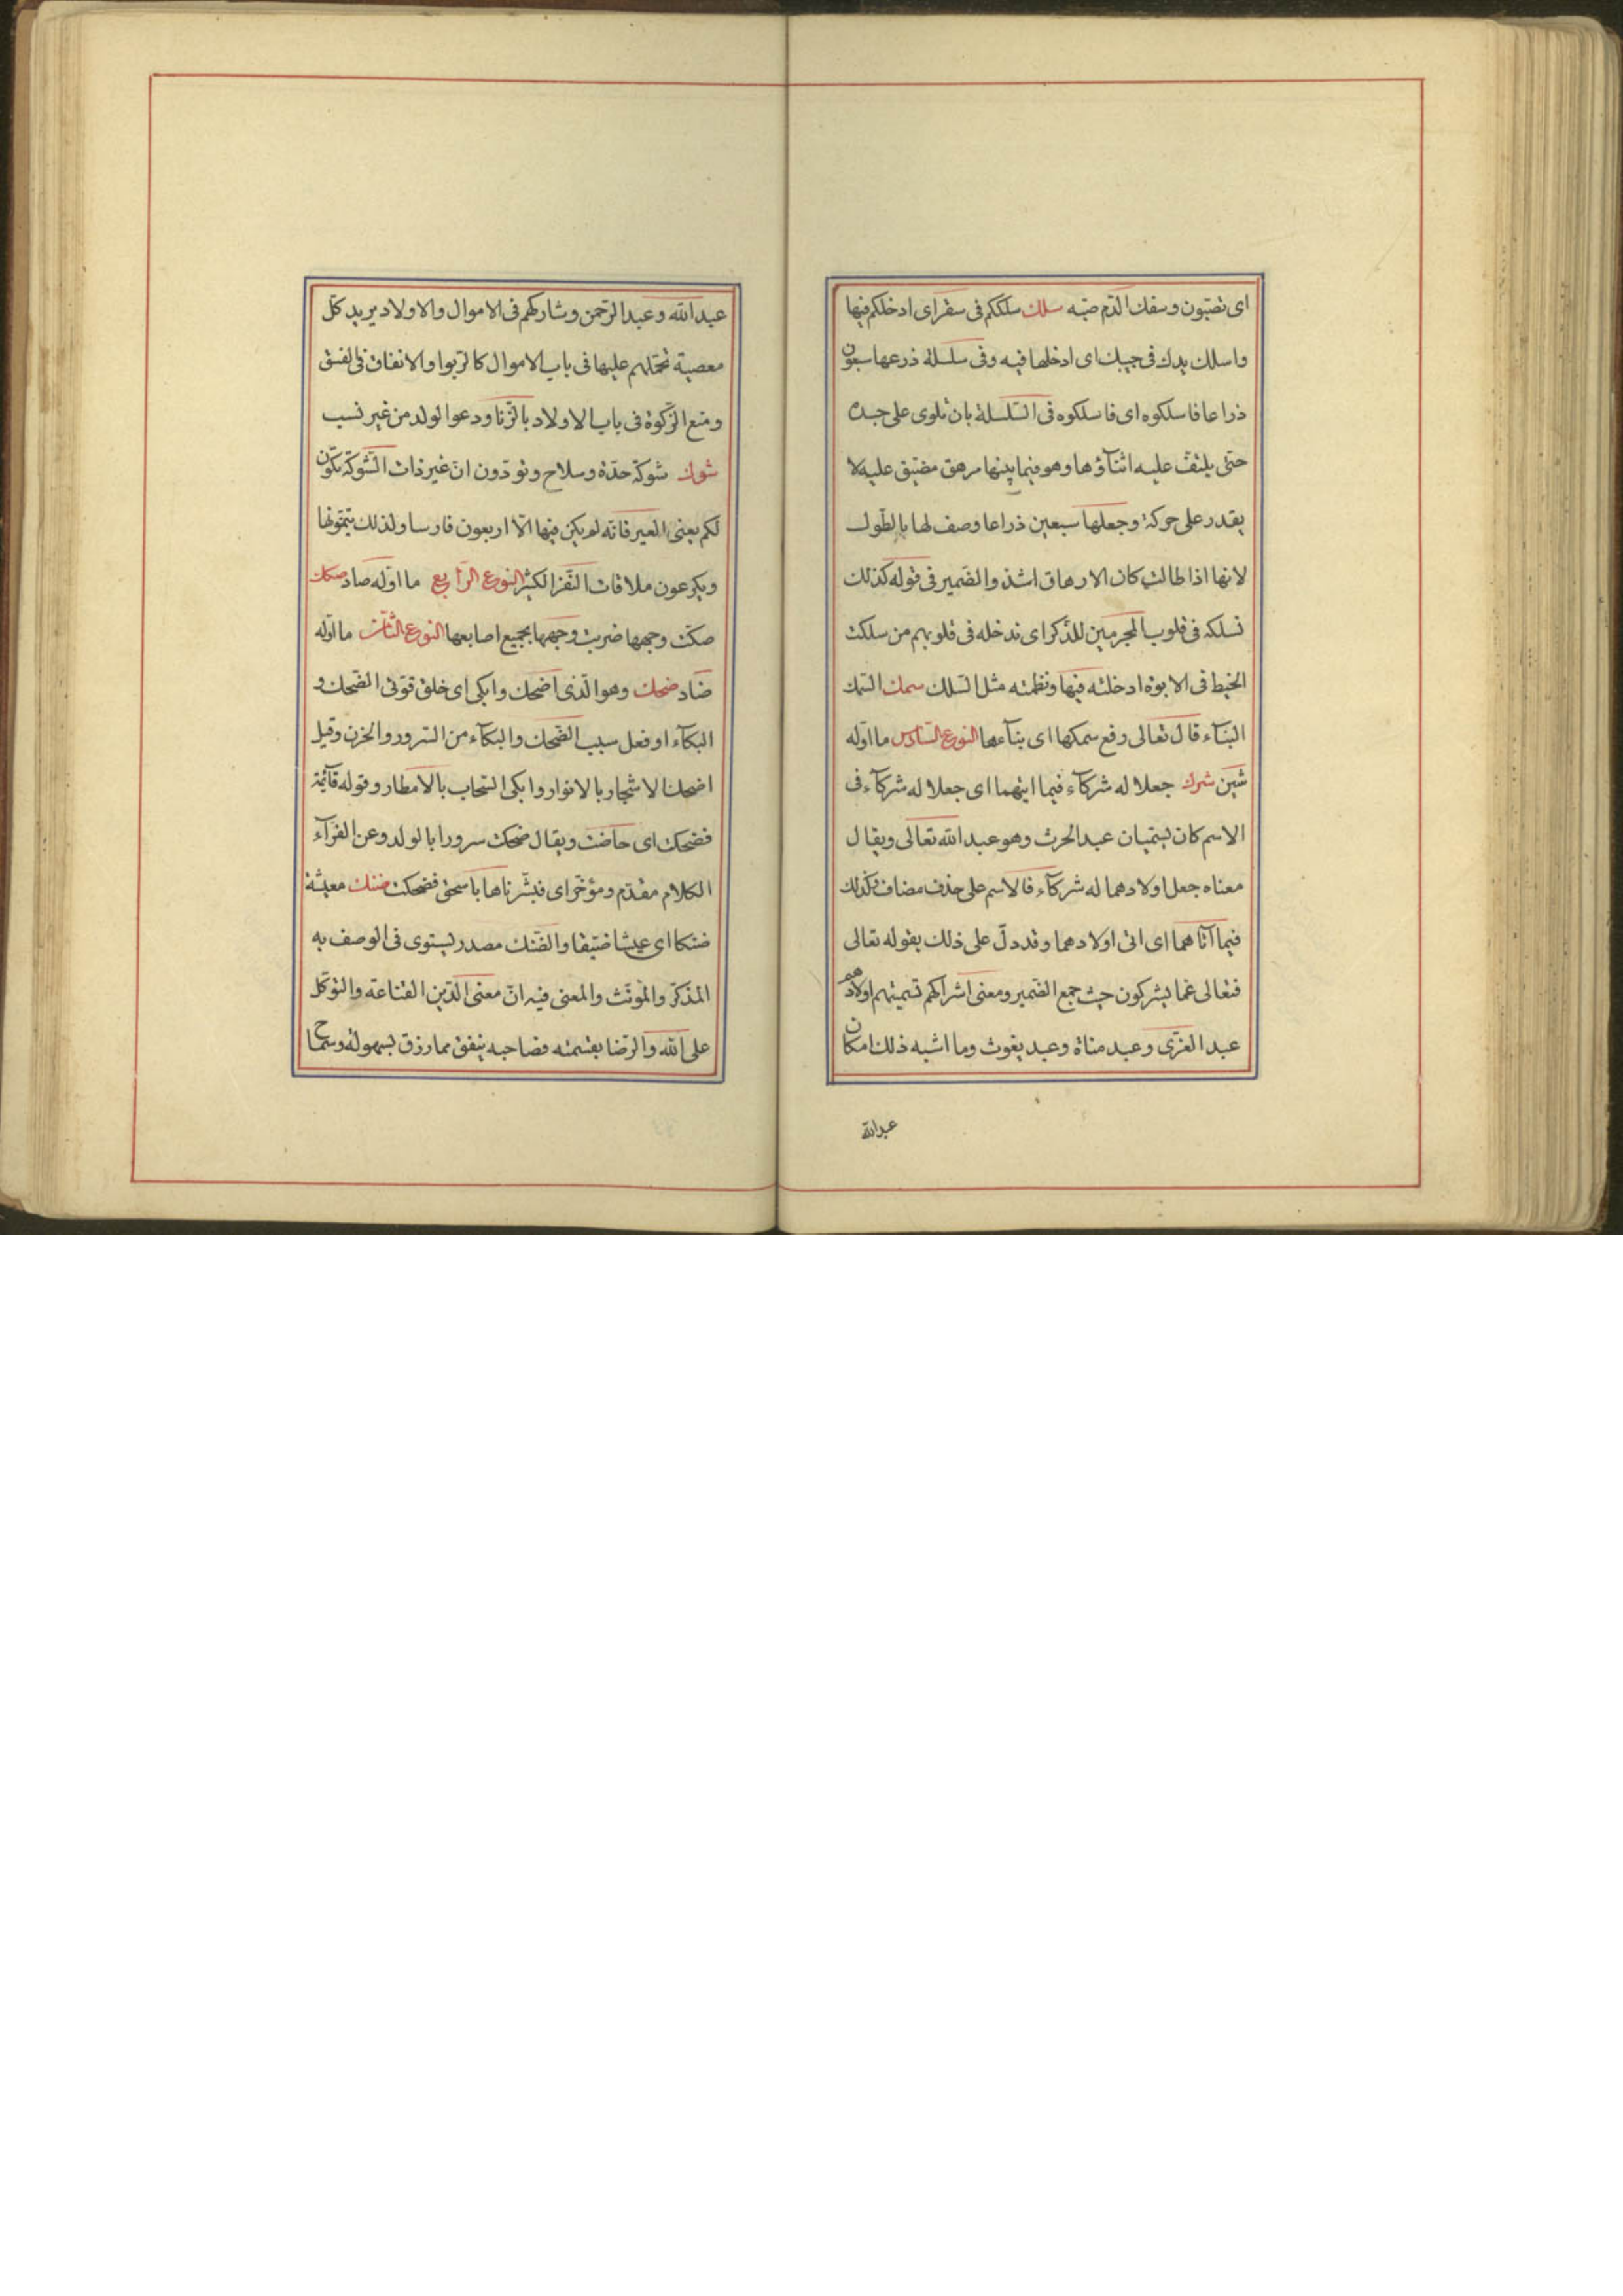 اى تصبّون وسفك الدّم صبّه سلك سلككم فى سقر اى ادخلكم فيها
واسلك يدك فى جيبك اى ادخلها فيه وفى سلسلة ذرعها سبعون
ذراعا فاسلكوه اى فاسلكوه فى السّلسلة بان تلوى على جسده
حتى يلتفّ عليه اثنآؤها وهو فيما بينها مرهق مضيّق عليه لا
يقدر على حركة وجعلها سبعين ذراعا وصف لها بالطّول
لانها اذا طالت كان الارهاق اشدّ والضّمير فى قوله كذلك
نسلكه فى قلوب المجرمين للذّكر اى ندخله فى قلوبهم من سلكت
الخيط فى الابرة ادخلته فيها ونظمته مثل السّلك سمك السّمك
البنآء قال تعالى رفع سمكها اى بنآءها النوع السّادس ما اوّله
شين شرك جعلا له شركآء فيما اتيهما اى جعلا له شركآء فى
الاسم كان يسمّيان عبد الحرث وهو عبد الله تعالى ويقال
معناه جعل اولادهما له شركآء فالاسم على حذف مضاف وكذلك
فيما آتاهما اى اتى اولادهما وقد دلّ على ذلك بقوله تعالى
فتعالى عما يشركون حيث جمع الضّمير ومعنى اشراكهم تسميتهم اولادهم
عبد العزّى وعبد مناة وعبد يغوث وما اشبه ذلك مكان
عبد الله
عبد الله وعبد الرّحمن وشاركهم فى الاموال والاولاد يريد كلّ
معصية تحملهم عليها فى باب الاموال كالرّبوا والانفاق فى الفسق
ومنع الزّكوة فى باب الاولاد بالزّنا ودعوا لولد من غير نسب
شوك شوكة حدّة وسلاح وتودّون انّ غير ذات الشّوكة تكون
لكم يعنى العير فانّه لم يكن فيها الّا اربعون فارسا ولذلك يتمنّونها
ويكرهون ملاقات النّفر الكثير النوع الرّابع ما اوّله صاد صكك
صكّت وجهها ضربت وجهها بجميع اصابعها النوع الثّالث ما اوّله
ضاد ضحك وهو الّذى اضحك وابكى اى خلق قوّتى الضّحك و
البكآء او فعل سبب الضّحك والبكآء من السّرور والحزن وقيل
اضحك الاشجار بالانوار وابكى السّحاب بالامطار وقوله قآئمة
فضحكت اى حاضت ويقال ضحكت سرورا بالولد وعن الفرّآء
الكلام مقدّم ومؤخّر اى فبشّرناها باسحق فضحكت ضنك معيشة
ضنكا اى عيشا ضيّقا والضّنك مصدر يستوى فى الوصف به
المذكّر والمؤنّث والمعنى فيه انّ معنى الدّين القناعة والتوكّل
على الله والرّضا بقسمته فصاحبه ينفق مما رزق بسهولة وسماح